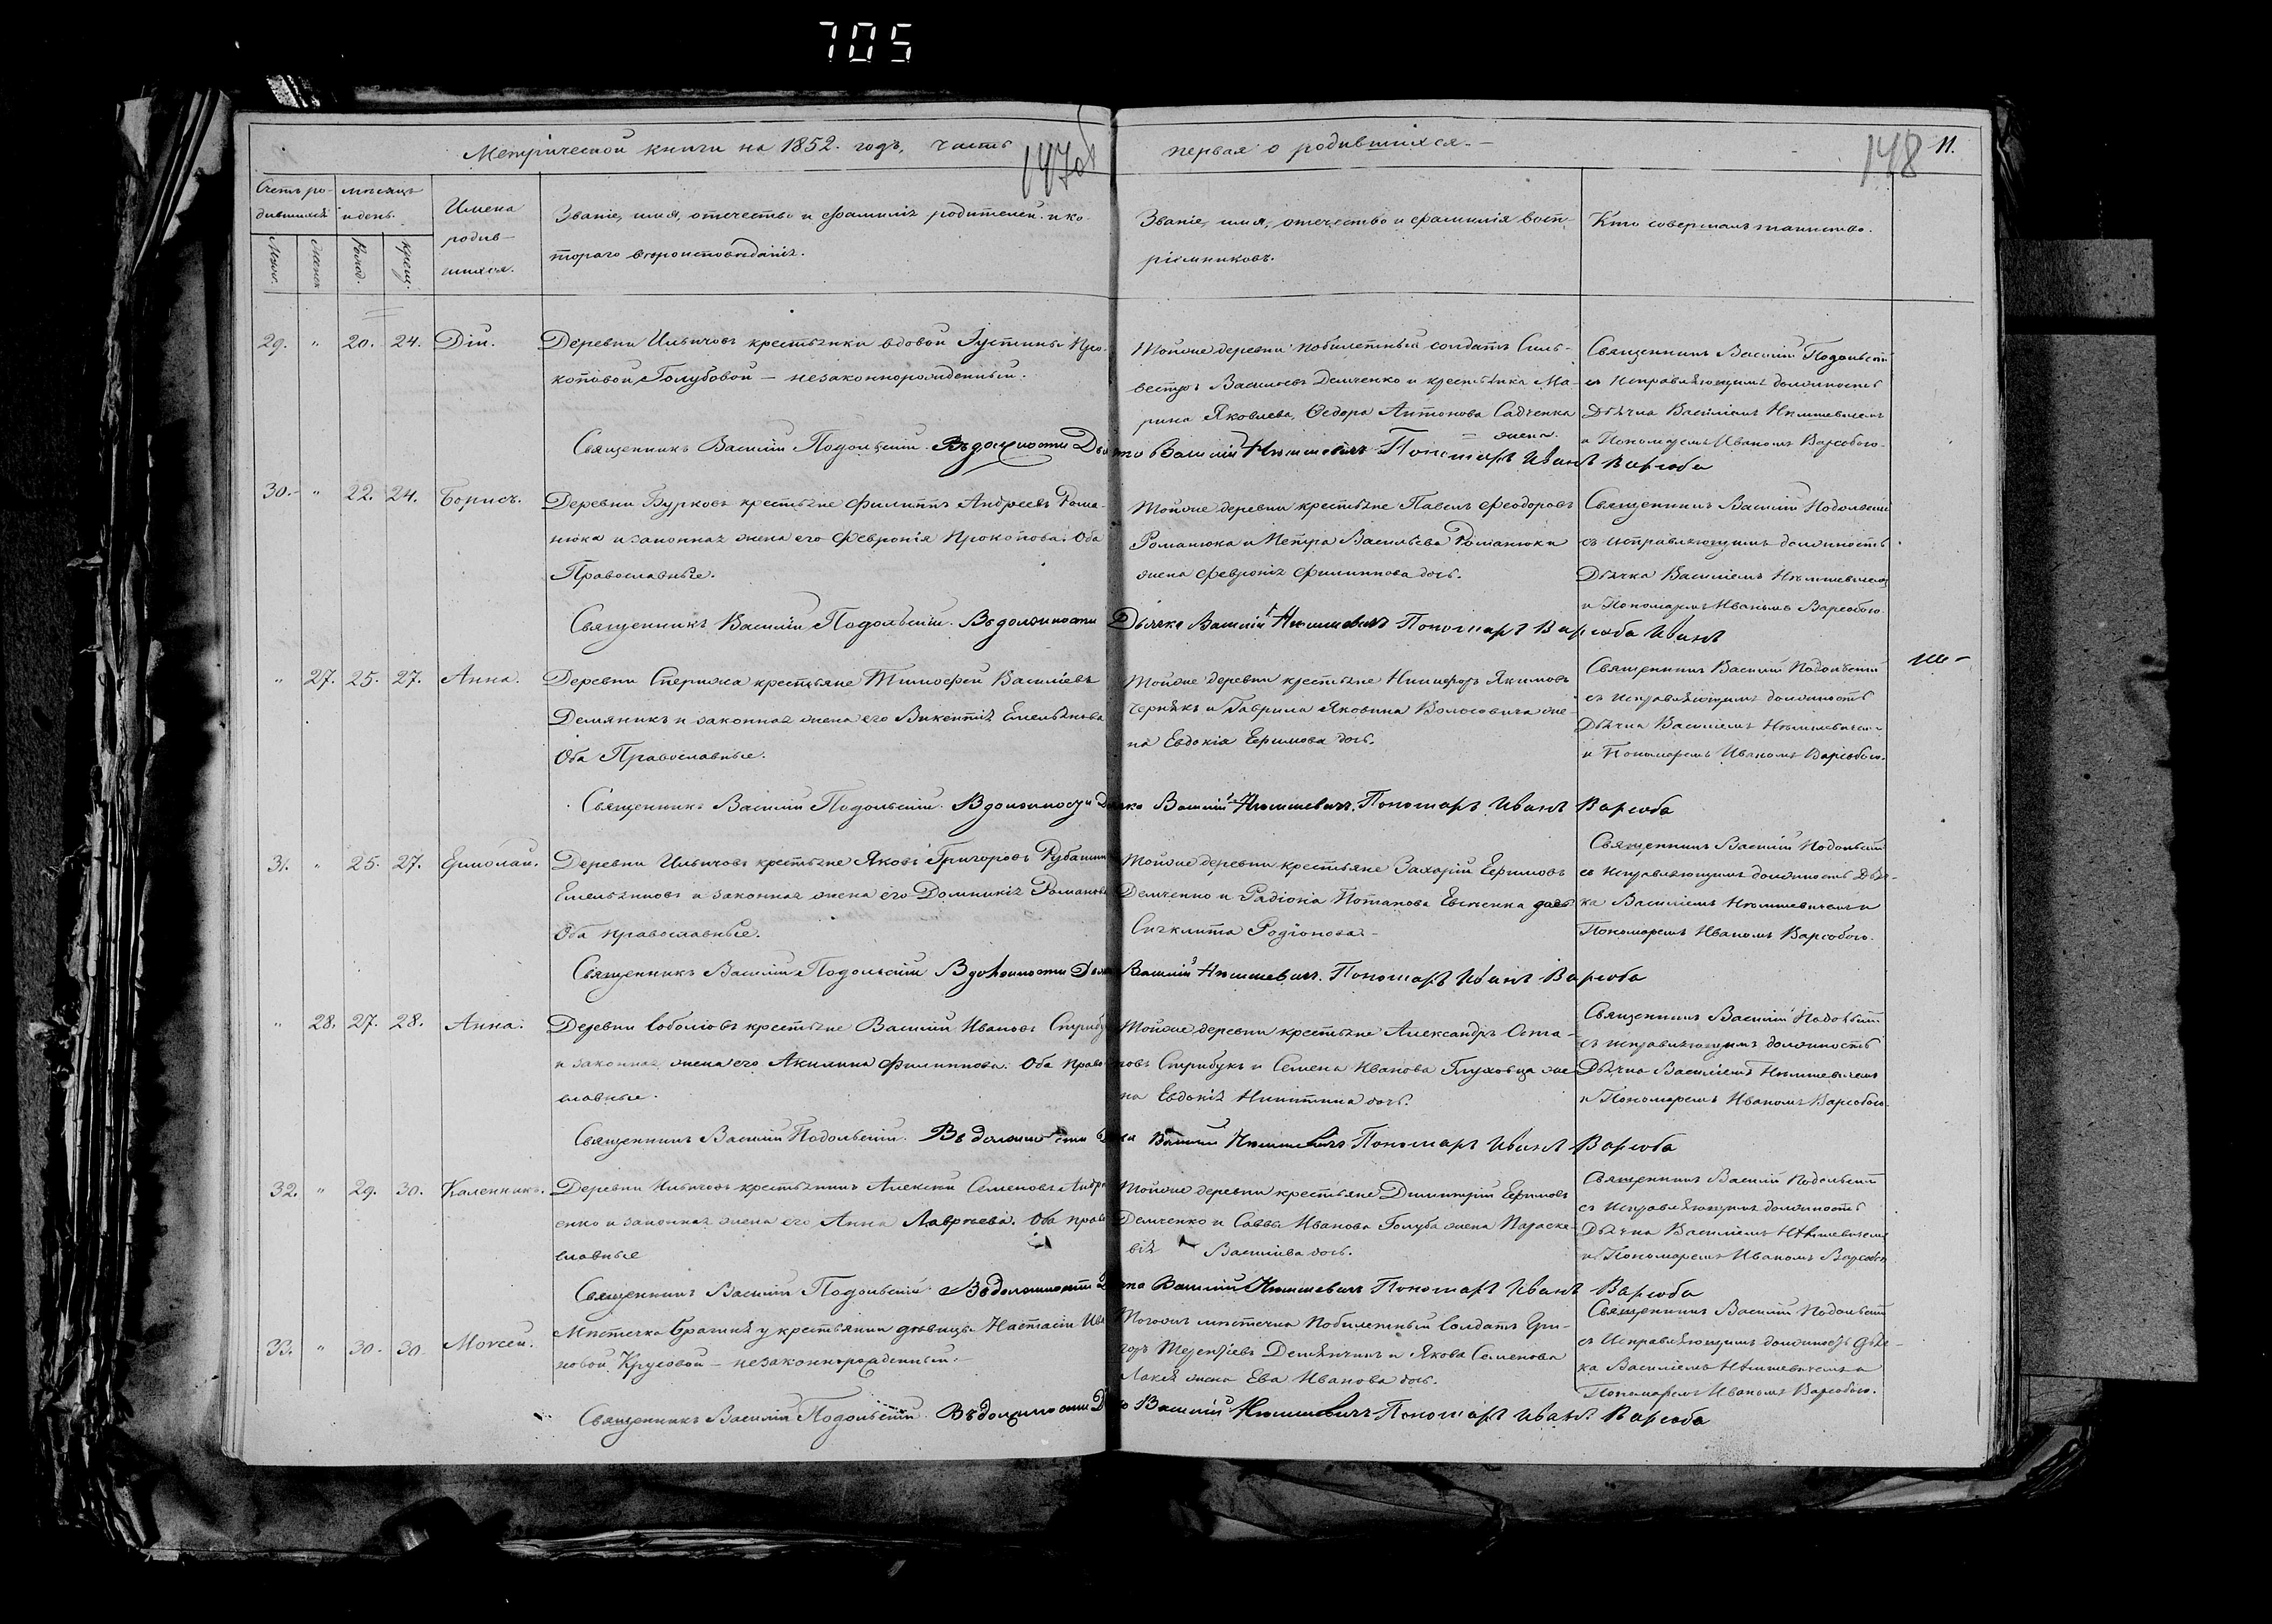 705
Метрической книги на 1852. годъ, часть
147об
первая о родившихся.
148 11.
Счетъ ро-
дившихся
мѣсяцъ
и день.
Имена
родив-
шихся.
Званіе, имя, отечество и фамилія родителей. и ко-
тораго вѣроисповѣданія.
Званіе, имя, отечество и фамилія восп-
ріемниковъ.
Кто совершалъ таинство.
Муж. Женск. Рожд. Крещ.
29. " 20. 24. Дій.
Деревни Ильичовъ крестьянки вдовой Іустины Про-
коповой Голубовой — незаконнорожденный.
Тойже деревни побилетный солдатъ Силь-
вестръ Васильевъ Демченко и крестьянка Ма-
рина Яковлева, Ѳедора Антонова Садченка
жена.
Священникъ Василій Подольскій
съ исправляющимъ должность
Дьячка Василіемъ Нѣмшевичемъ
и Пономаремъ Иваномъ Варсобою.
Священникъ Василій Подольскій. Въ должности Дьячка Василій Нѣмшевичъ Пономарь Иванъ Варсоба
30. " 22. 24. Борисъ.
Деревни Бурковъ крестьяне Филиппъ Андреевъ Рома-
нюка и законная жена его Февронія Прокопова. Оба
Православные.
Тойже деревни крестьяне Павелъ Феодоровъ
Романюка и Петра Васильева Романюка
жена Февронія Филиппова дочь.
Священникъ Василій Подольскій
съ исправляющимъ должность
Дьячка Василіемъ Нѣмшевичемъ
и Пономаремъ Иваномъ Варсобою.
Священникъ Василій Подольскій. Въ должности Дьячка Василій Нѣмшевичъ Пономарь Варсоба Иванъ
" 27. 25. 27. Анна.
Деревни Спержа крестьяне Тимофей Василіевъ
Демяникъ и законная жена его Викентія Емельянова
Оба Православные.
Тойже деревни крестьяне Никифоръ Якимовъ
Чернякъ и Гаврила Яковина Волосовича же-
на Евдокія Ефимова дочь.
Священникъ Василій Подольскій
съ исправляющимъ должность
Дьячка Василіемъ Нѣмшевичемъ
и Пономаремъ Иваномъ Варсобою.
Священникъ Василій Подольскій. В должности Дьячка Василій Нѣмшевичъ. Пономарь Иванъ Варсоба
31. " 25. 27. Ермолай.
Деревни Ильичовъ крестьяне Яковъ Григоровъ
Емельяновъ и законная жена его Домникія Романова
Оба православные.
Тойже деревни крестьяне Захарій Ефимовъ
Демченко и Радіона Потапова Евсѣенка дочь
Синклита Родіонова.
Священникъ Василій Подольскій
съ исправляющимъ должность Дьяч-
ка Василіемъ Нѣмшевичемъ и
Пономаремъ Иваномъ Варсобою.
Священникъ Василій Подольскій В должности Дьячка Василій Нѣмшевичъ. Пономарь Иванъ Варсоба
" 28. 27. 28. Анна.
Деревни Соболіовъ крестьяне Василій Ивановъ Стрибукъ
и законная жена его Акилина Филиппова. Оба право-
славные.
Тойже деревни крестьяне Александръ Оста-
повъ Стрибукъ и Семена Иванова Глуховца же-
на Евдокія Никитина дочь.
Священникъ Василій Подольскій
съ исправляющимъ должность
Дьячка Василіемъ Нѣмшевичемъ
и Пономаремъ Иваномъ Варсобою.
Священникъ Василій Подольскій. Въ должности Дьячка Василій Нѣмшевичъ Пономарь Иванъ Варсоба
32. " 29. 30. Каленникъ.
Деревни Ильичовъ крестьянинъ Алексѣй Семеновъ Андре-
енко и законная жена его Анна Лаврѣева. Оба право-
славные
Тойже деревни крестьяне Димитрій Ефимовъ
Демченко и Саввы Иванова Голуба жена Параске-
вія Васильева дочь.
Священникъ Василій Подольскій
съ исправляющимъ должность
Дьячка Василіемъ Нѣмшевичемъ
и Пономаремъ Иваномъ Варсобою
Священникъ Василій Подольскій. Въ должности Дьячка Василій Нѣмшевичъ Пономарь Иванъ Варсоба
33. " 30. 30. Моисей.
Мѣстечка Брагина у крестьянки дѣвицы Настасіи Ива-
новой Крусовой — незаконнорожденный.
Тогожъ мѣстечка Побилетный Солдатъ Гри-
горъ Терентіевъ Демянчикъ и Якова Семенова
Лакея жена Ева Иванова дочь.
Священникъ Василій Подольскій
съ исправляющимъ должность Дьяч-
ка Василіемъ Нѣмшевичемъ и
Пономаремъ Иваномъ Варсобою.
Священникъ Василій Подольскій. Въ должности Дьячка Василій Нѣмшевичъ Пономарь Иванъ Варсоба